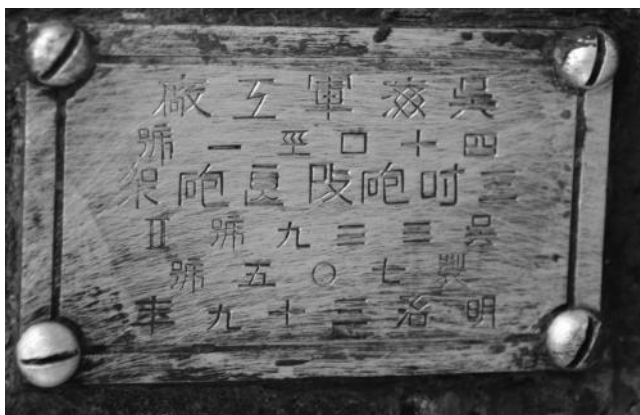 呉海軍工廠
四十口巠一號
三吋砲改良砲架
呉三三九號Ⅱ
製七〇五號
明治三十九年